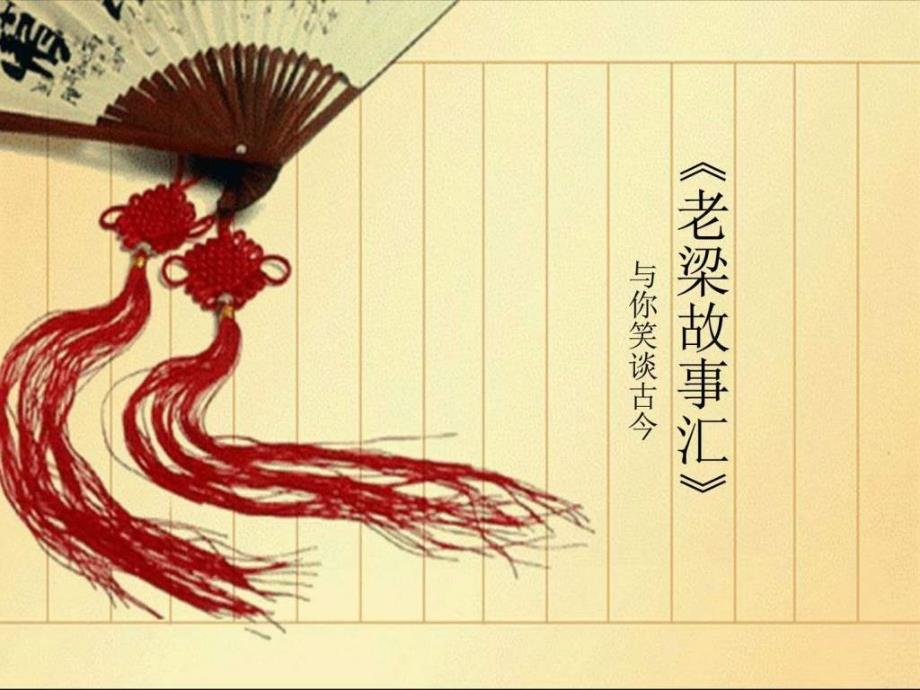 《老梁故事汇》
与你笑谈古今